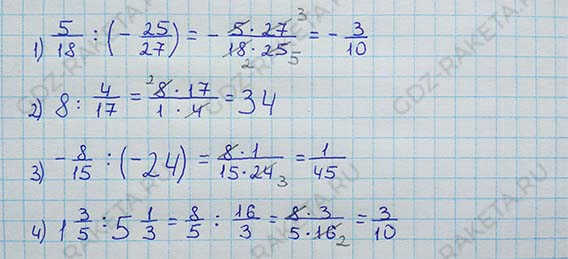 1) 5/18 : (- 25/27) = - 5 · 27 3/18 2 · 25 5 = - 3/10
2) 8 : 4/17 = 2 8 · 17/1 · 4 = 34
3) - 8/15 : (-24) = 8 · 1/15 · 24 3 = 1/45
4) 1 3/5 : 5 1/3 = 8/5 : 16/3 = 8 · 3/5 · 16 2 = 3/10
GDZ-RAKETA.RU